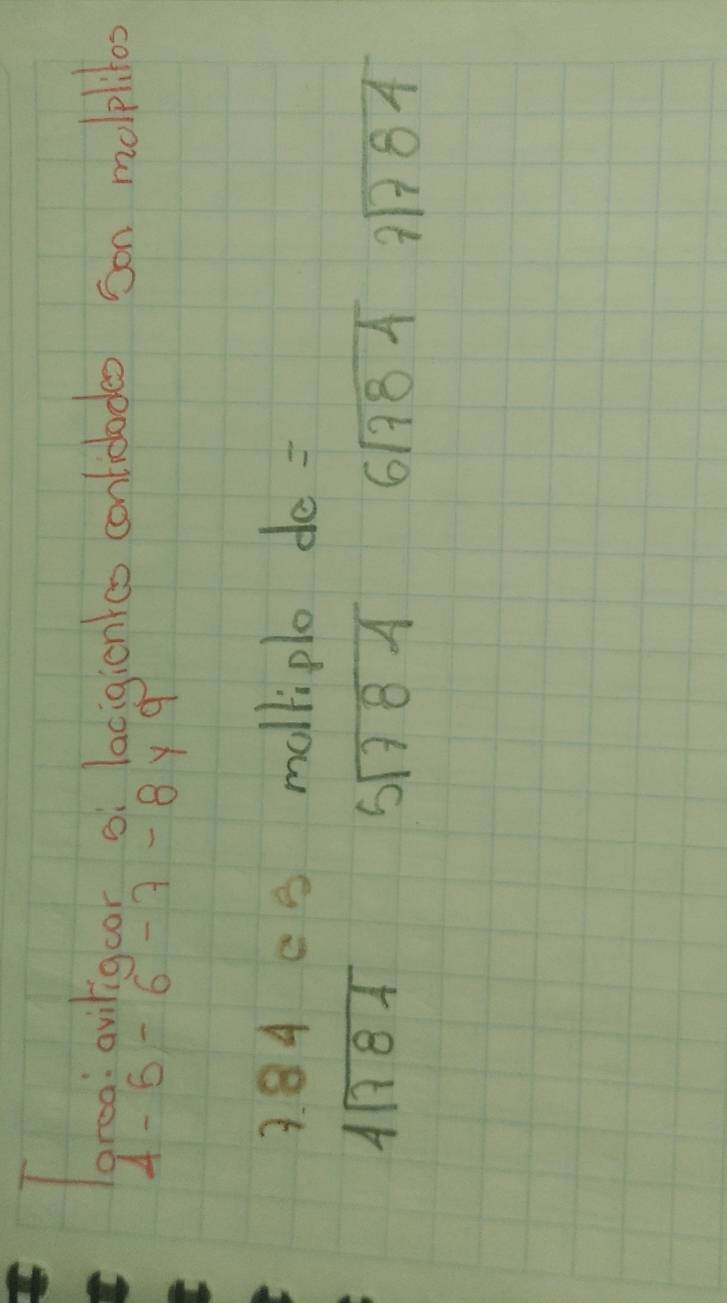 Tarea: avirigcar si lacigientes cantidades son molplitos
4 - 5 - 6 - 7 - 8 y 9
784 es moltiplo de =
4 784 5 784 6 784 7 784